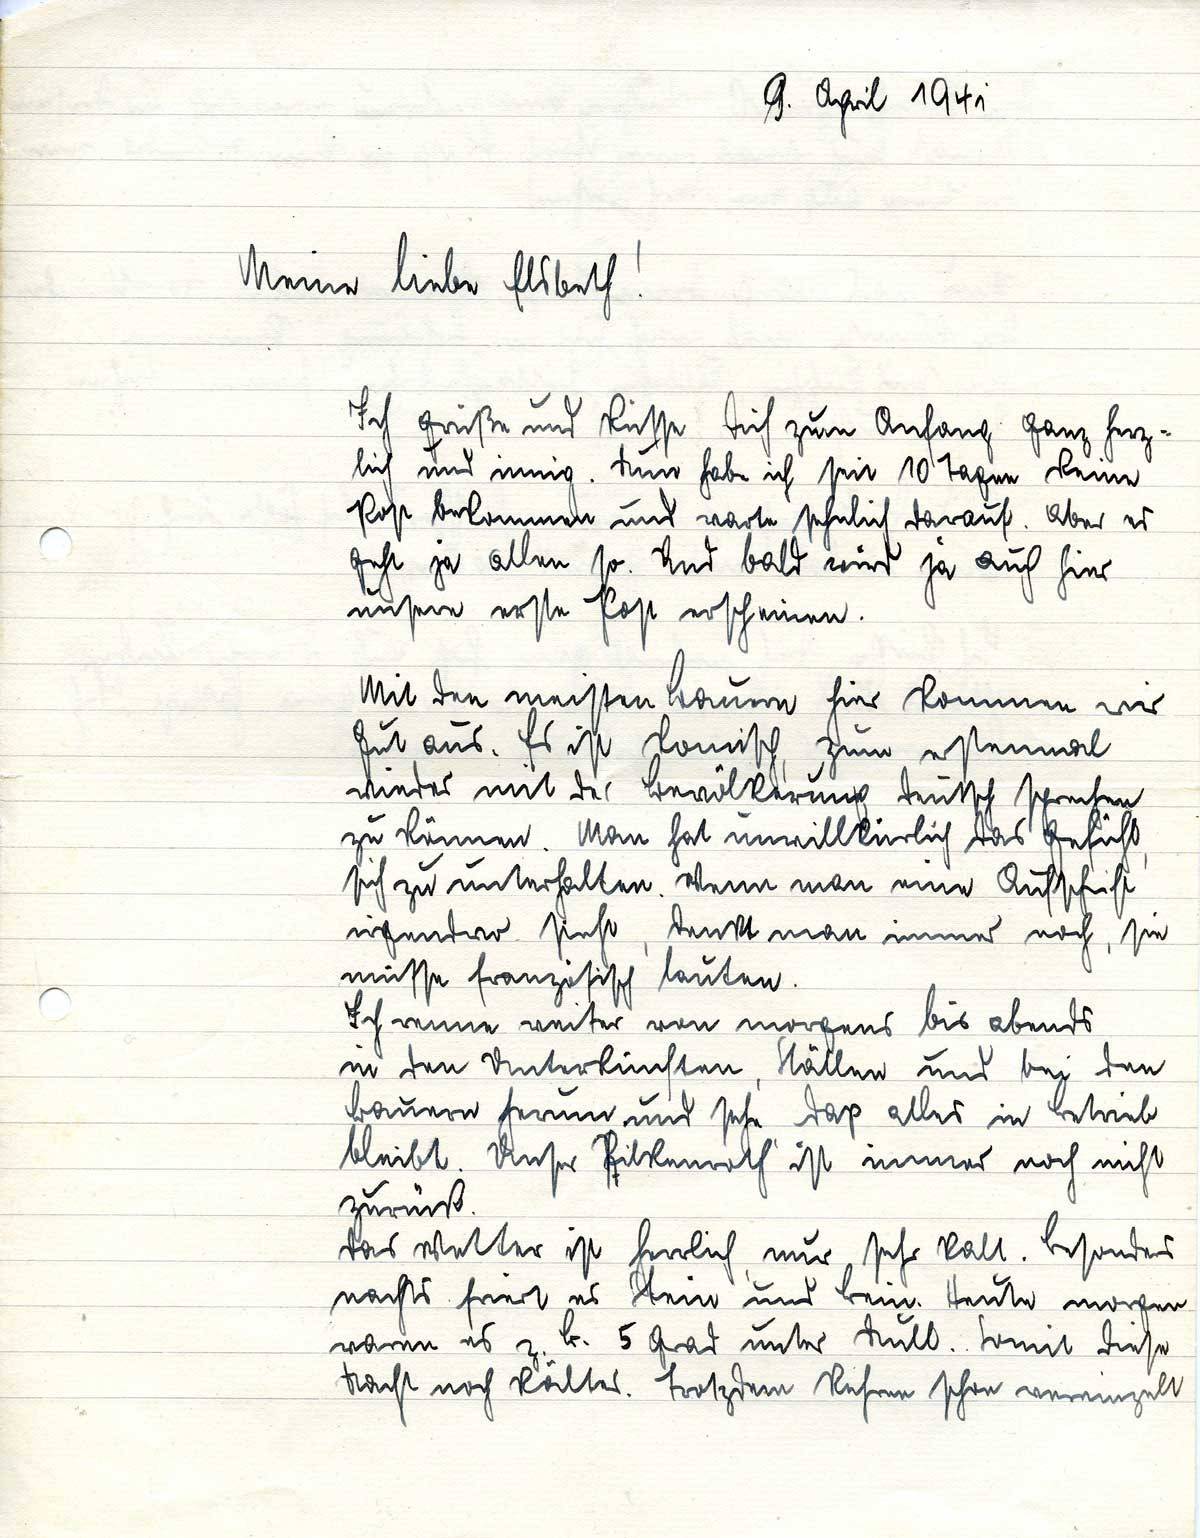 9. April 1941
Meine liebe Elsbeth!
Ich grüße und küsse Dich zum Anfang ganz herz-
lich und innig. Nun habe ich seit 10 Tagen keine
Post bekommen und warte sehnlich darauf. Aber es
geht ja allen so. Und bald wird ja auch hier
unsere erste Post erscheinen.
Mit den meisten Bauern hier kommen wir
gut aus. Es ist komisch, zum erstenmal
wieder mit der Bevölkerung deutsch sprechen
zu können. Man hat unwillkürlich das Gefühl,
sich zu unterhalten. Wenn man eine Aufschrift
irgendwo sieht, denkt man immer noch, sie
müsse französisch lauten.
Ich renne weiter von morgens bis abends
in den Unterkünften, Ställen und bei den
Bauern herum und sehe dap alles in Betrieb
bleibt. Unser Pilkenroth ist immer noch nicht
zurück.
Das Wetter ist herrlich, nur sehr kalt. Besonders
nachts friert es Stein und Bein. Heute morgen
waren es z. B. 5 Grad unter Null. Somit diese
Nacht noch kälter. Trotzdem kehren schon vereinzelt